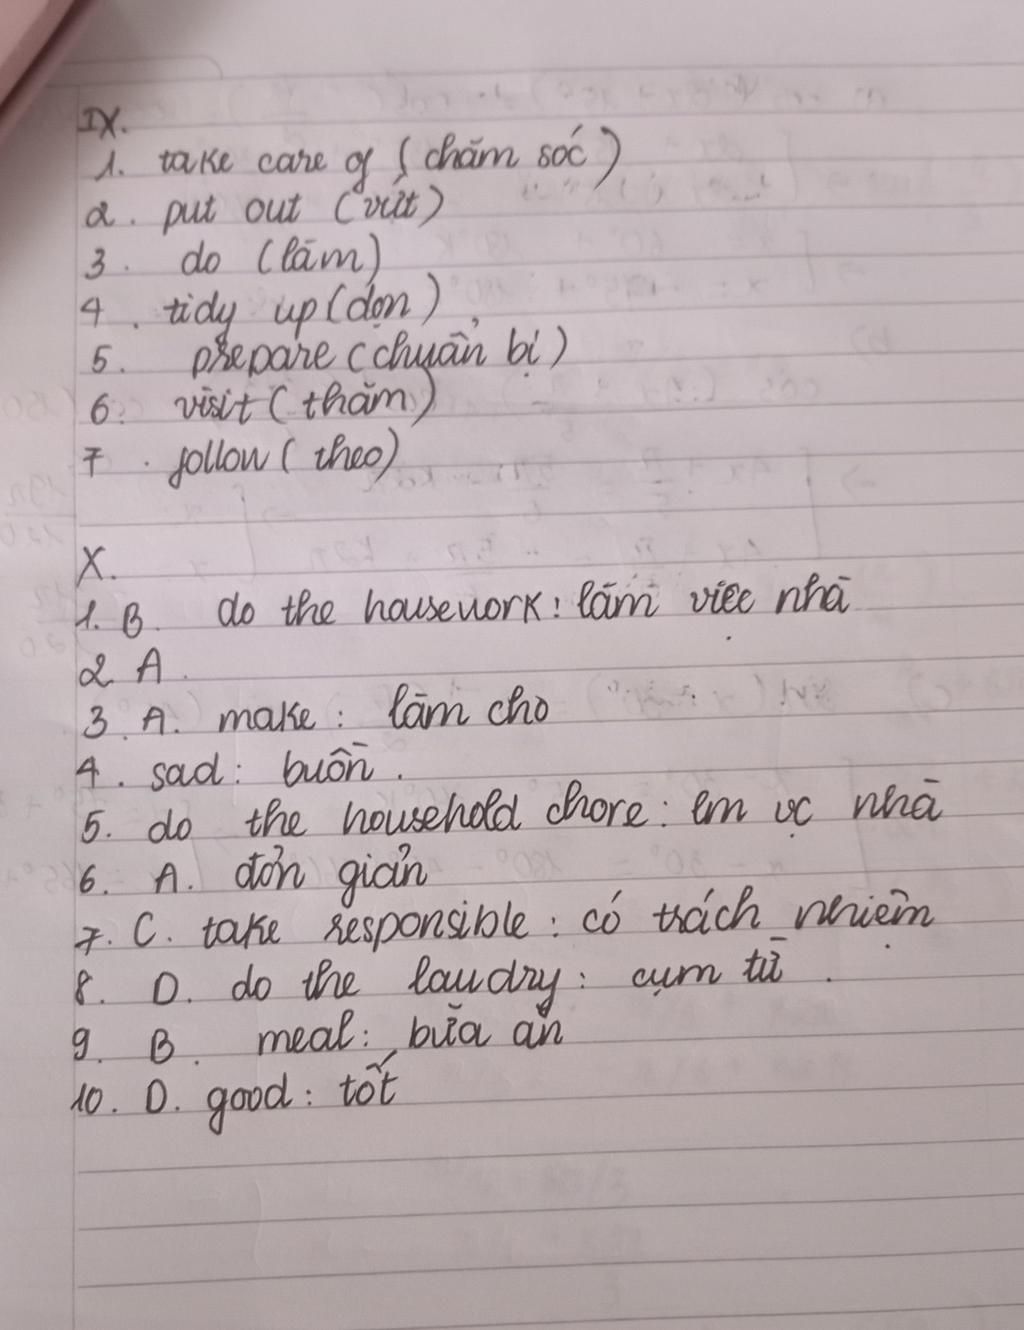 IX.
1. take care of (chăm sóc)
2. put out (vứt)
3. do (làm)
4. tidy up (dọn)
5. prepare (chuẩn bị)
6. visit (thăm)
7. follow (theo)
X.
1. B. do the housework: làm việc nhà
2. A.
3. A. make: làm cho
4. sad: buồn.
5. do the household chore: lm vc nhà
6. A. đơn giản
7. C. take responsible: có trách nhiệm
8. D. do the laudry: cụm từ.
9. B. meal: bữa ăn
10. D. good: tốt